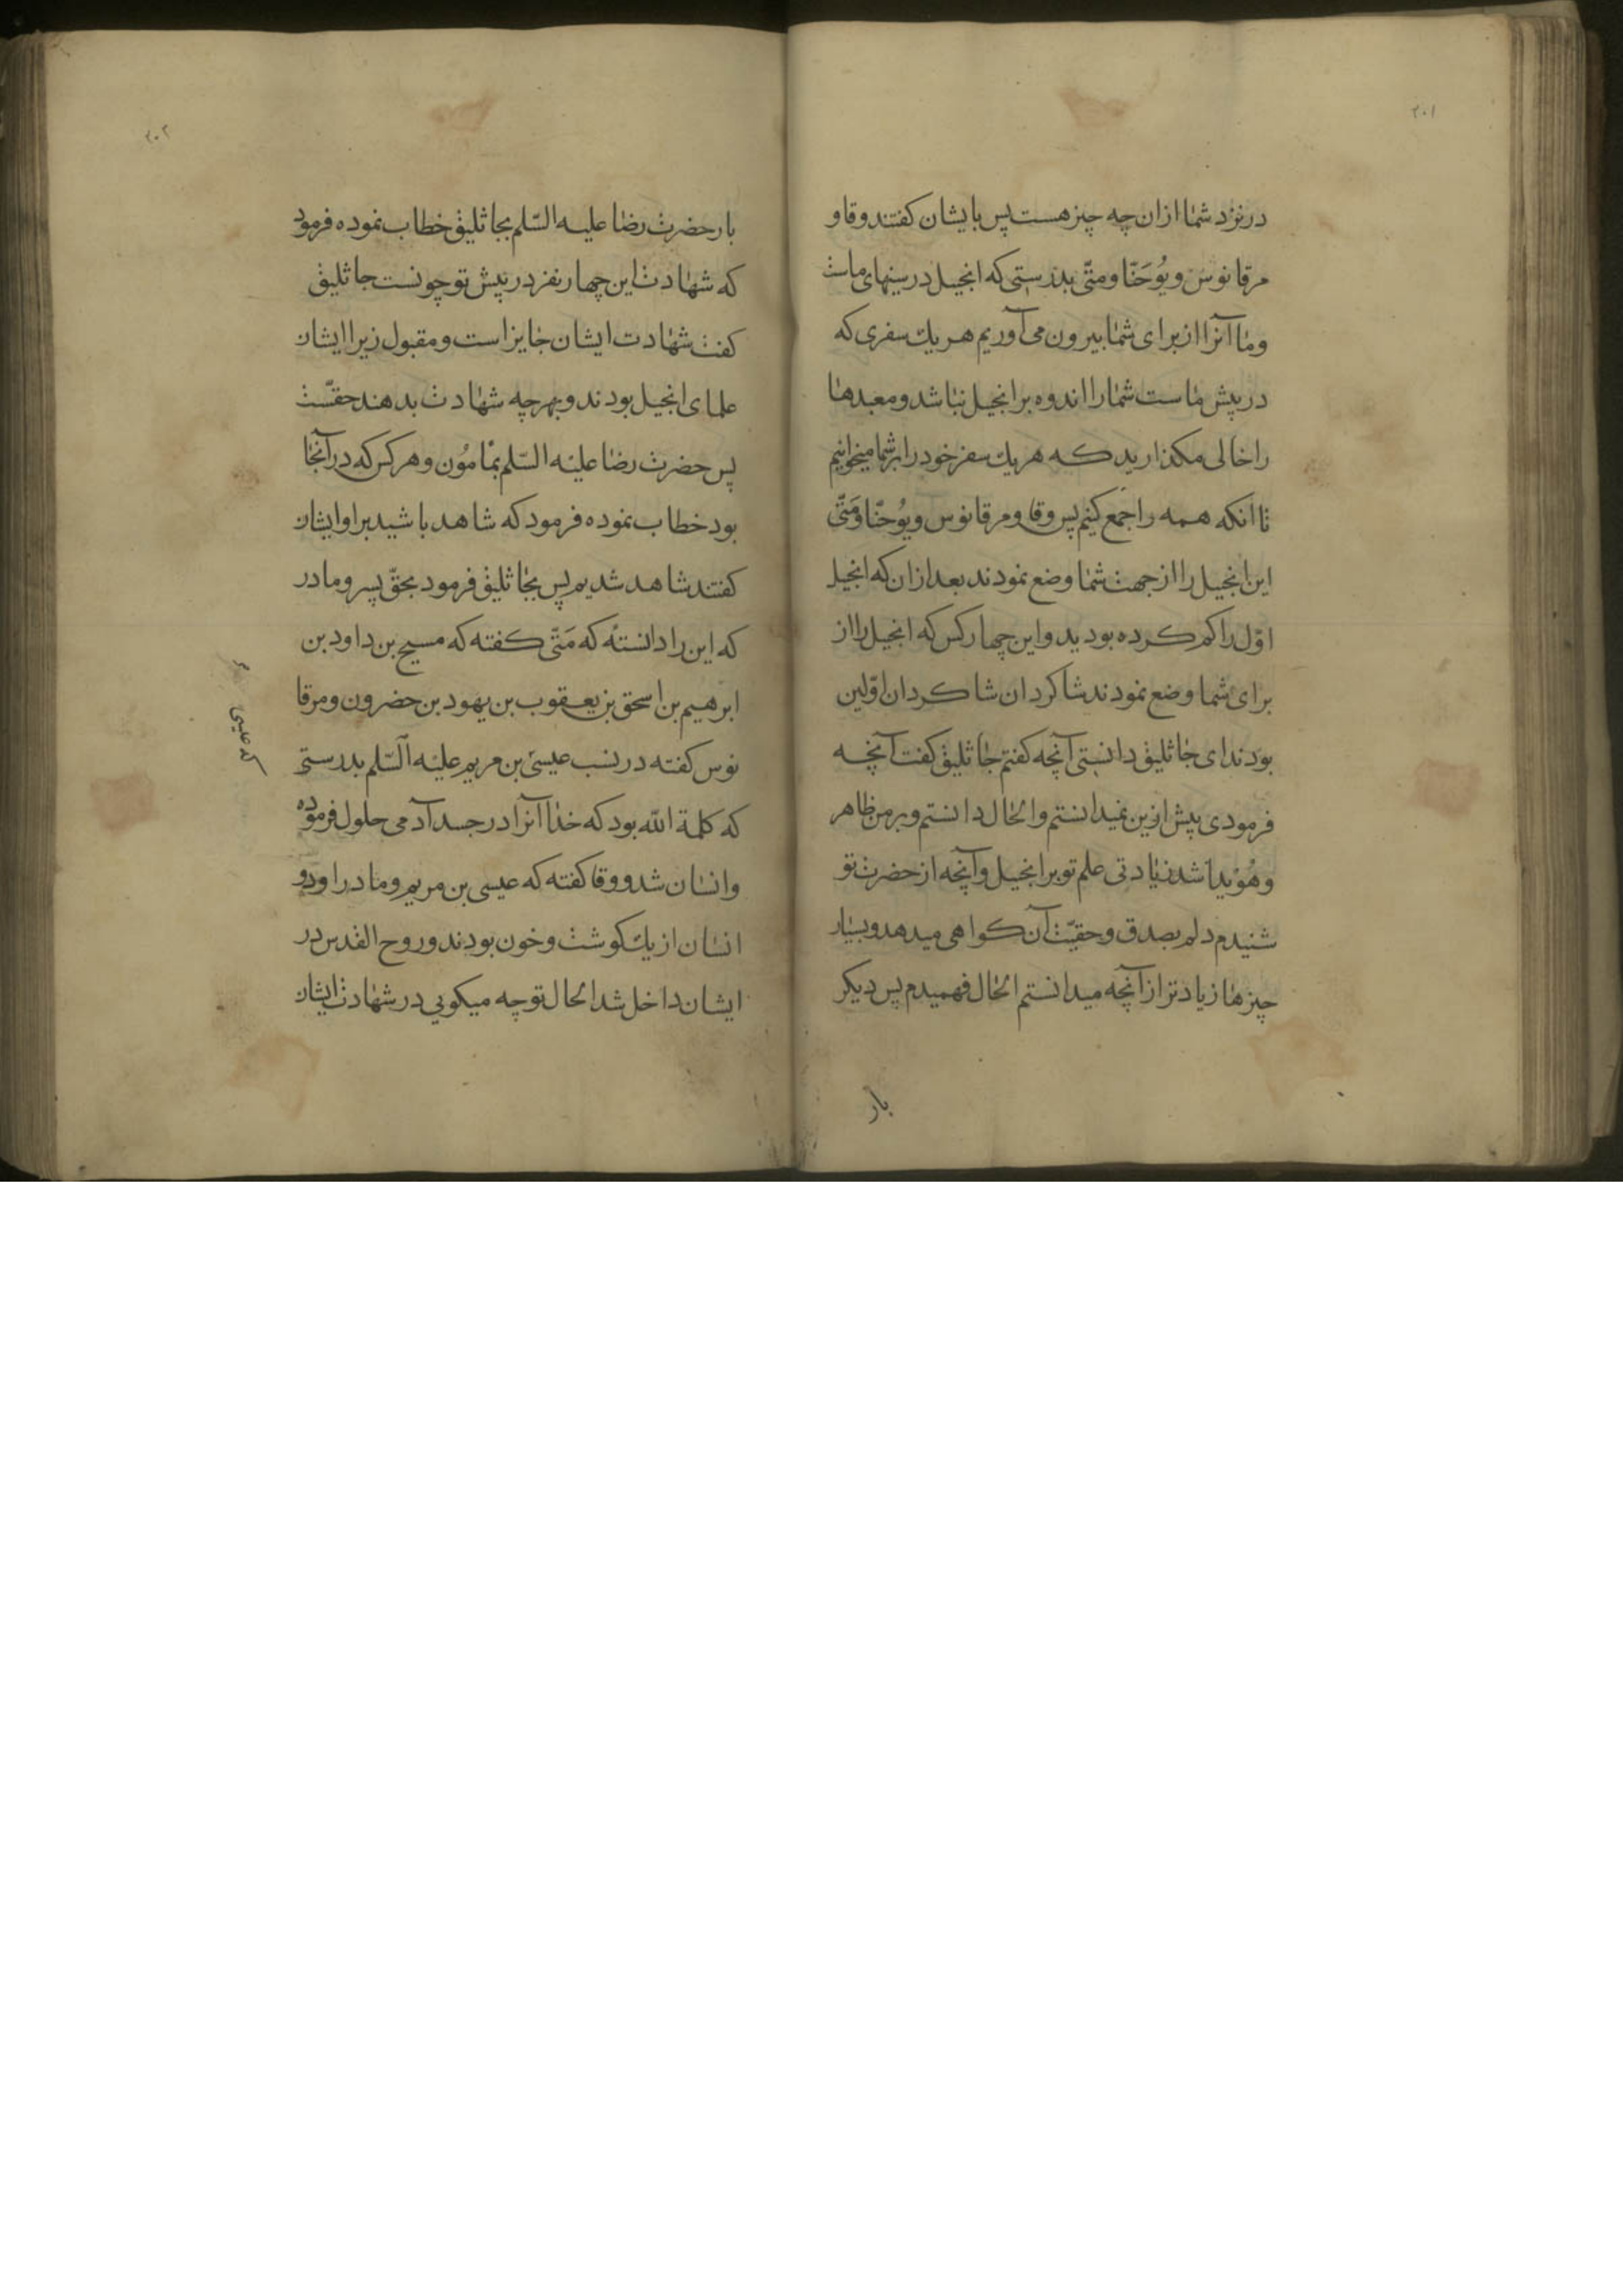 ۲۰۱
در نزد شما ازان چه چیز هست پس بایشان کفتند وقا و
مرقانوس و یُوحَنّا و متّی بدرستی که انجیل در سینهای ماست
و ما آنرا از برای شما بیرون می آوریم هر یك سفری که
در پیش ماست شما را اندوه بر انجیل نباشد و معبدها
را خالی مکذارید که هر یك سفر خود را بر شما میخوانیم
تا انکه همه را جمع کنیم پس وقا و مرقانوس و یُوحنّا و مَتّی
این انجیل را از جهت شما وضع نمودند بعد ازان که انجیل
اوّل را کم کرده بودید و این چهار کس که انجیل را از
برای شما وضع نمودند شاکردان شاکردان اوّلین
بودند ای جاثلیق دانستی آنچه کفتم جاثلیق کفت آنچه
فرمودی پیش ازین نمیدانستم و الحال دانستم و بر من ظاهر
و هُوَیدا شد زیادتی علم تو بر انجیل و آنچه از حضرت تو
شنیدم دلم بصدق و حقیّت آن کواهی میدهد و بسیار
چیزها زیادتر از آنچه میدانستم الحال فهمیدم پس دیکر
بار
۲۰۲
بار حضرت رضا علیه السّلم بجاثلیق خطاب نموده فرمود
که شهادت این چهار نفر در پیش تو چونست جاثلیق
کفت شهادت ایشان جایز است و مقبول زیرا ایشان
علمای انجیل بودند و بهر چه شهادت بدهند حقّست
پس حضرت رضا علیه السّلم بمامُون و هر کس که در آنجا
بود خطاب نموده فرمود که شاهد باشید بر او ایشان
کفتند شاهد شدیم پس بجاثلیق فرمود بحقّ پسر و مادر
که این را دانستهٔ که مَتّی کفته که مسیح بن داود بن
ابرهیم بن اسحق بن یعقوب بن یهود بن حضرون و مرقا
نوس کفته در نسب عیسیٰ بن مریم علیه السّلم بدرستی
که کلمة الله بود که خدا آنرا در جسد آدمی حلول فرموده
و انسان شد و وقا کفته که عیسی بن مریم و مادر او دو
انسان از یك کوشت و خون بودند و روح القدس در
ایشان داخل شد الحال تو چه میکویی در شهادت ایشان
که عیسی